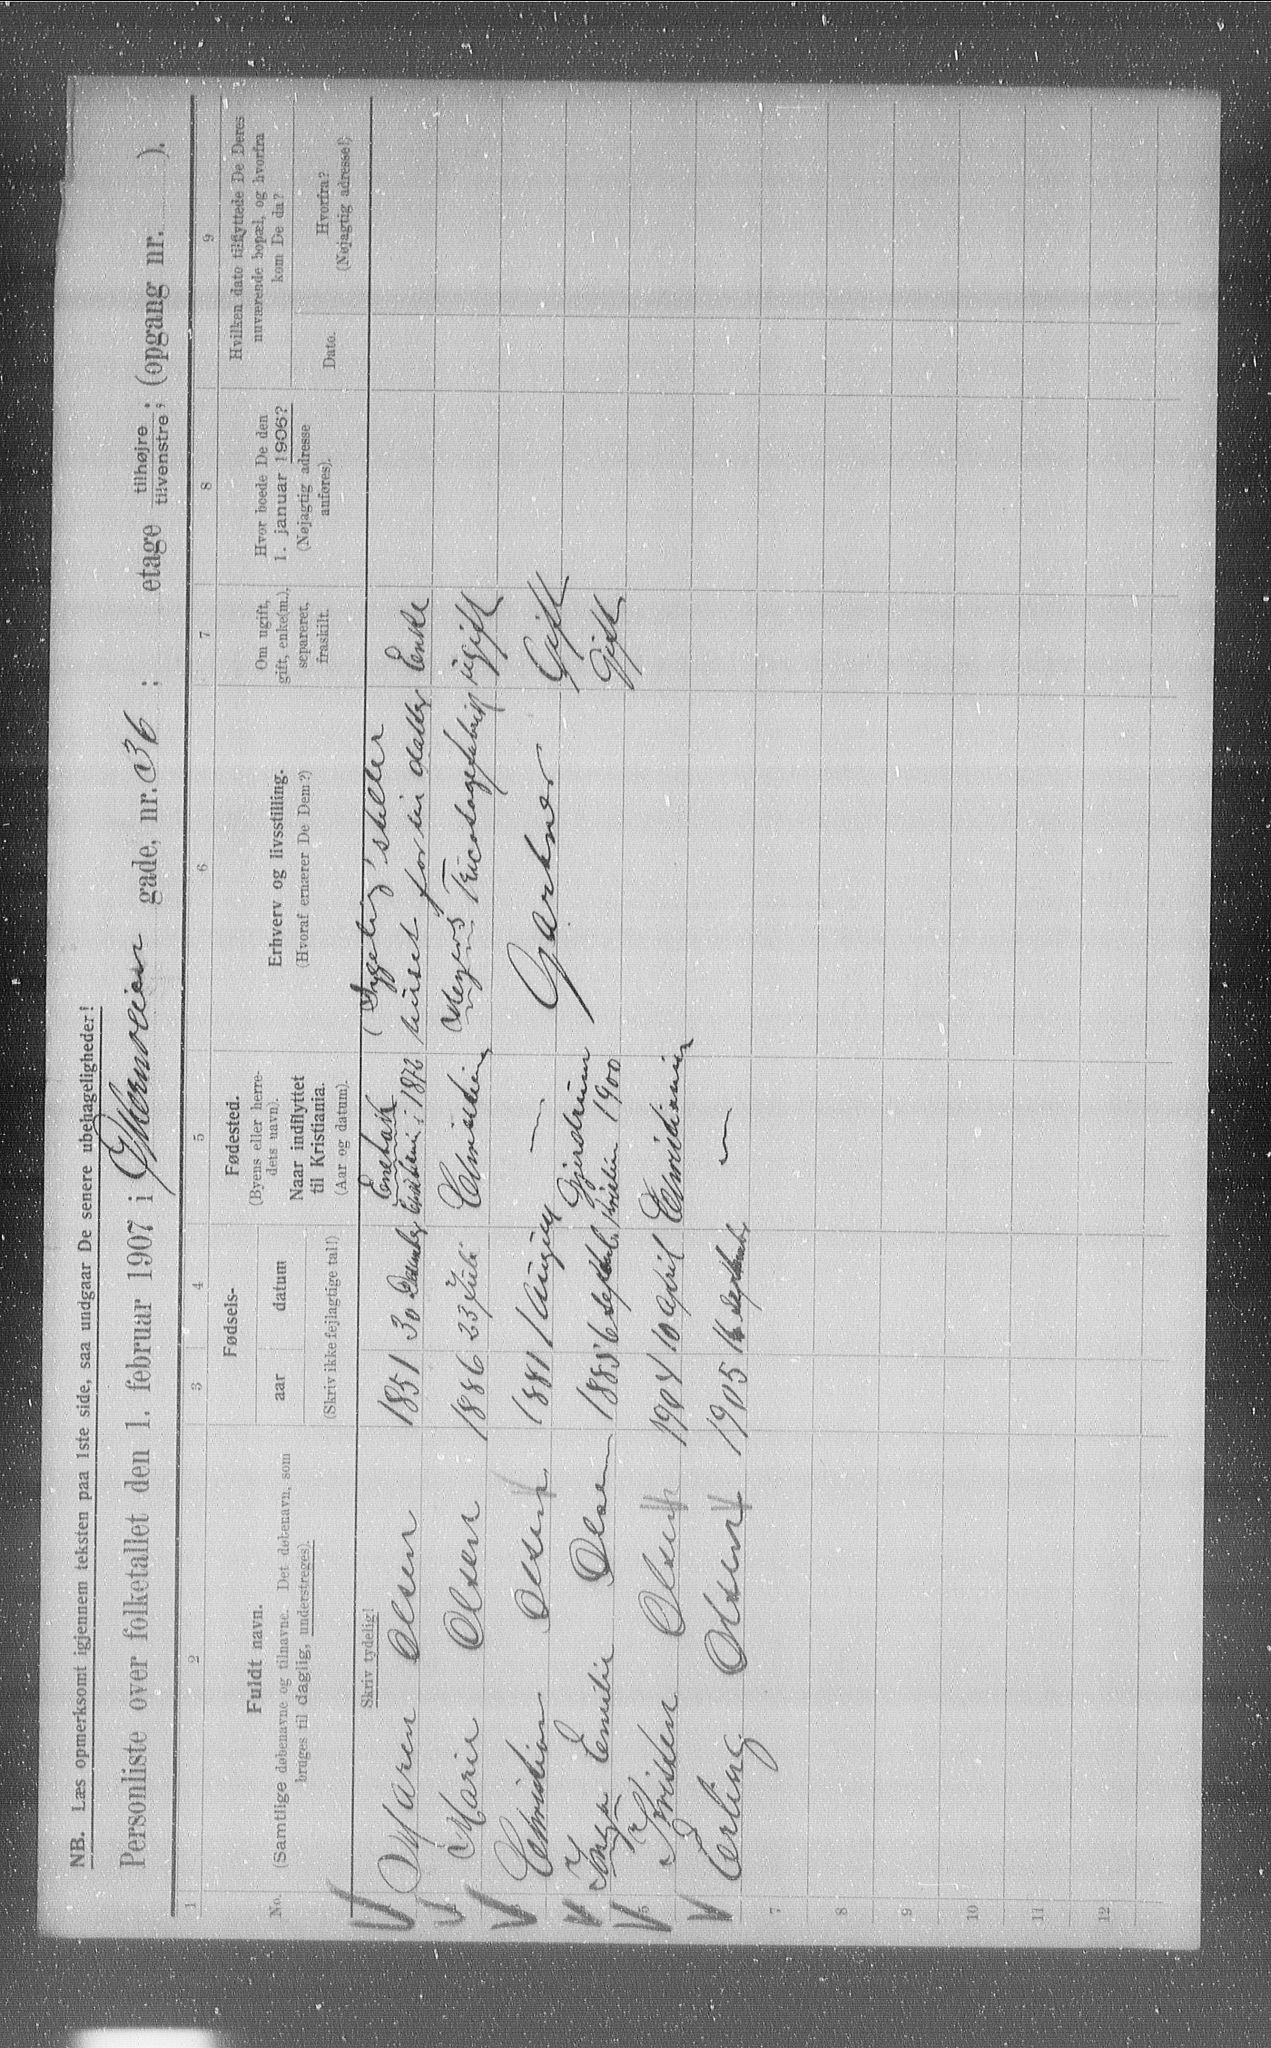 NB. Læs opmerksomt igjennem teksten paa 1ste side, saa undgaar De senere ubehageligheder!
Personliste over folketallet den 1. februar 1907 i gade, nr. 36 ; etage tilhøjre ; tilvenstre ; (opgang nr. ).
1 2 3 4 5 6 7 8 9
No.
Fuldt navn.
(Samtlige døbenavne og tilnavne. Det døbenavn, som
bruges til daglig, understreges).
Fødsels-
aar datum
(Skriv ikke fejlagtige tal!)
Fødested.
(Byens eller herre-
dets navn).
Naar indflyttet
til Kristiania.
(Aar og datum).
Erhverv og livsstilling.
(Hvoraf ernærer De Dem?)
Om ugift,
gift, enke(m.),
separeret,
fraskilt.
Hvor boede De den
1. januar 1906?
(Nøjagtig adresse
anføres).
Hvilken dato tilflyttede De Deres
nuværende bopæl, og hvorfra
kom De da?
Dato.
Hvorfra?
(Nøjagtig adresse!)
Skriv tydelig!
Maren Olsen 1851 30 Enebak i 1872 huset for Enke
Marie Olsen 1886 23 Juli Christiania Tricotagefabrik ugift
Christian Olsen 1881 1 August — Gartner Gift
Inga Emilie Olsen 1885 6 Gjerdrum 1900 Gift
Kristen Olsen 1904 10 April Christiania
Erling Olsen 1905 16 —
5
7
8
9
10
11
12